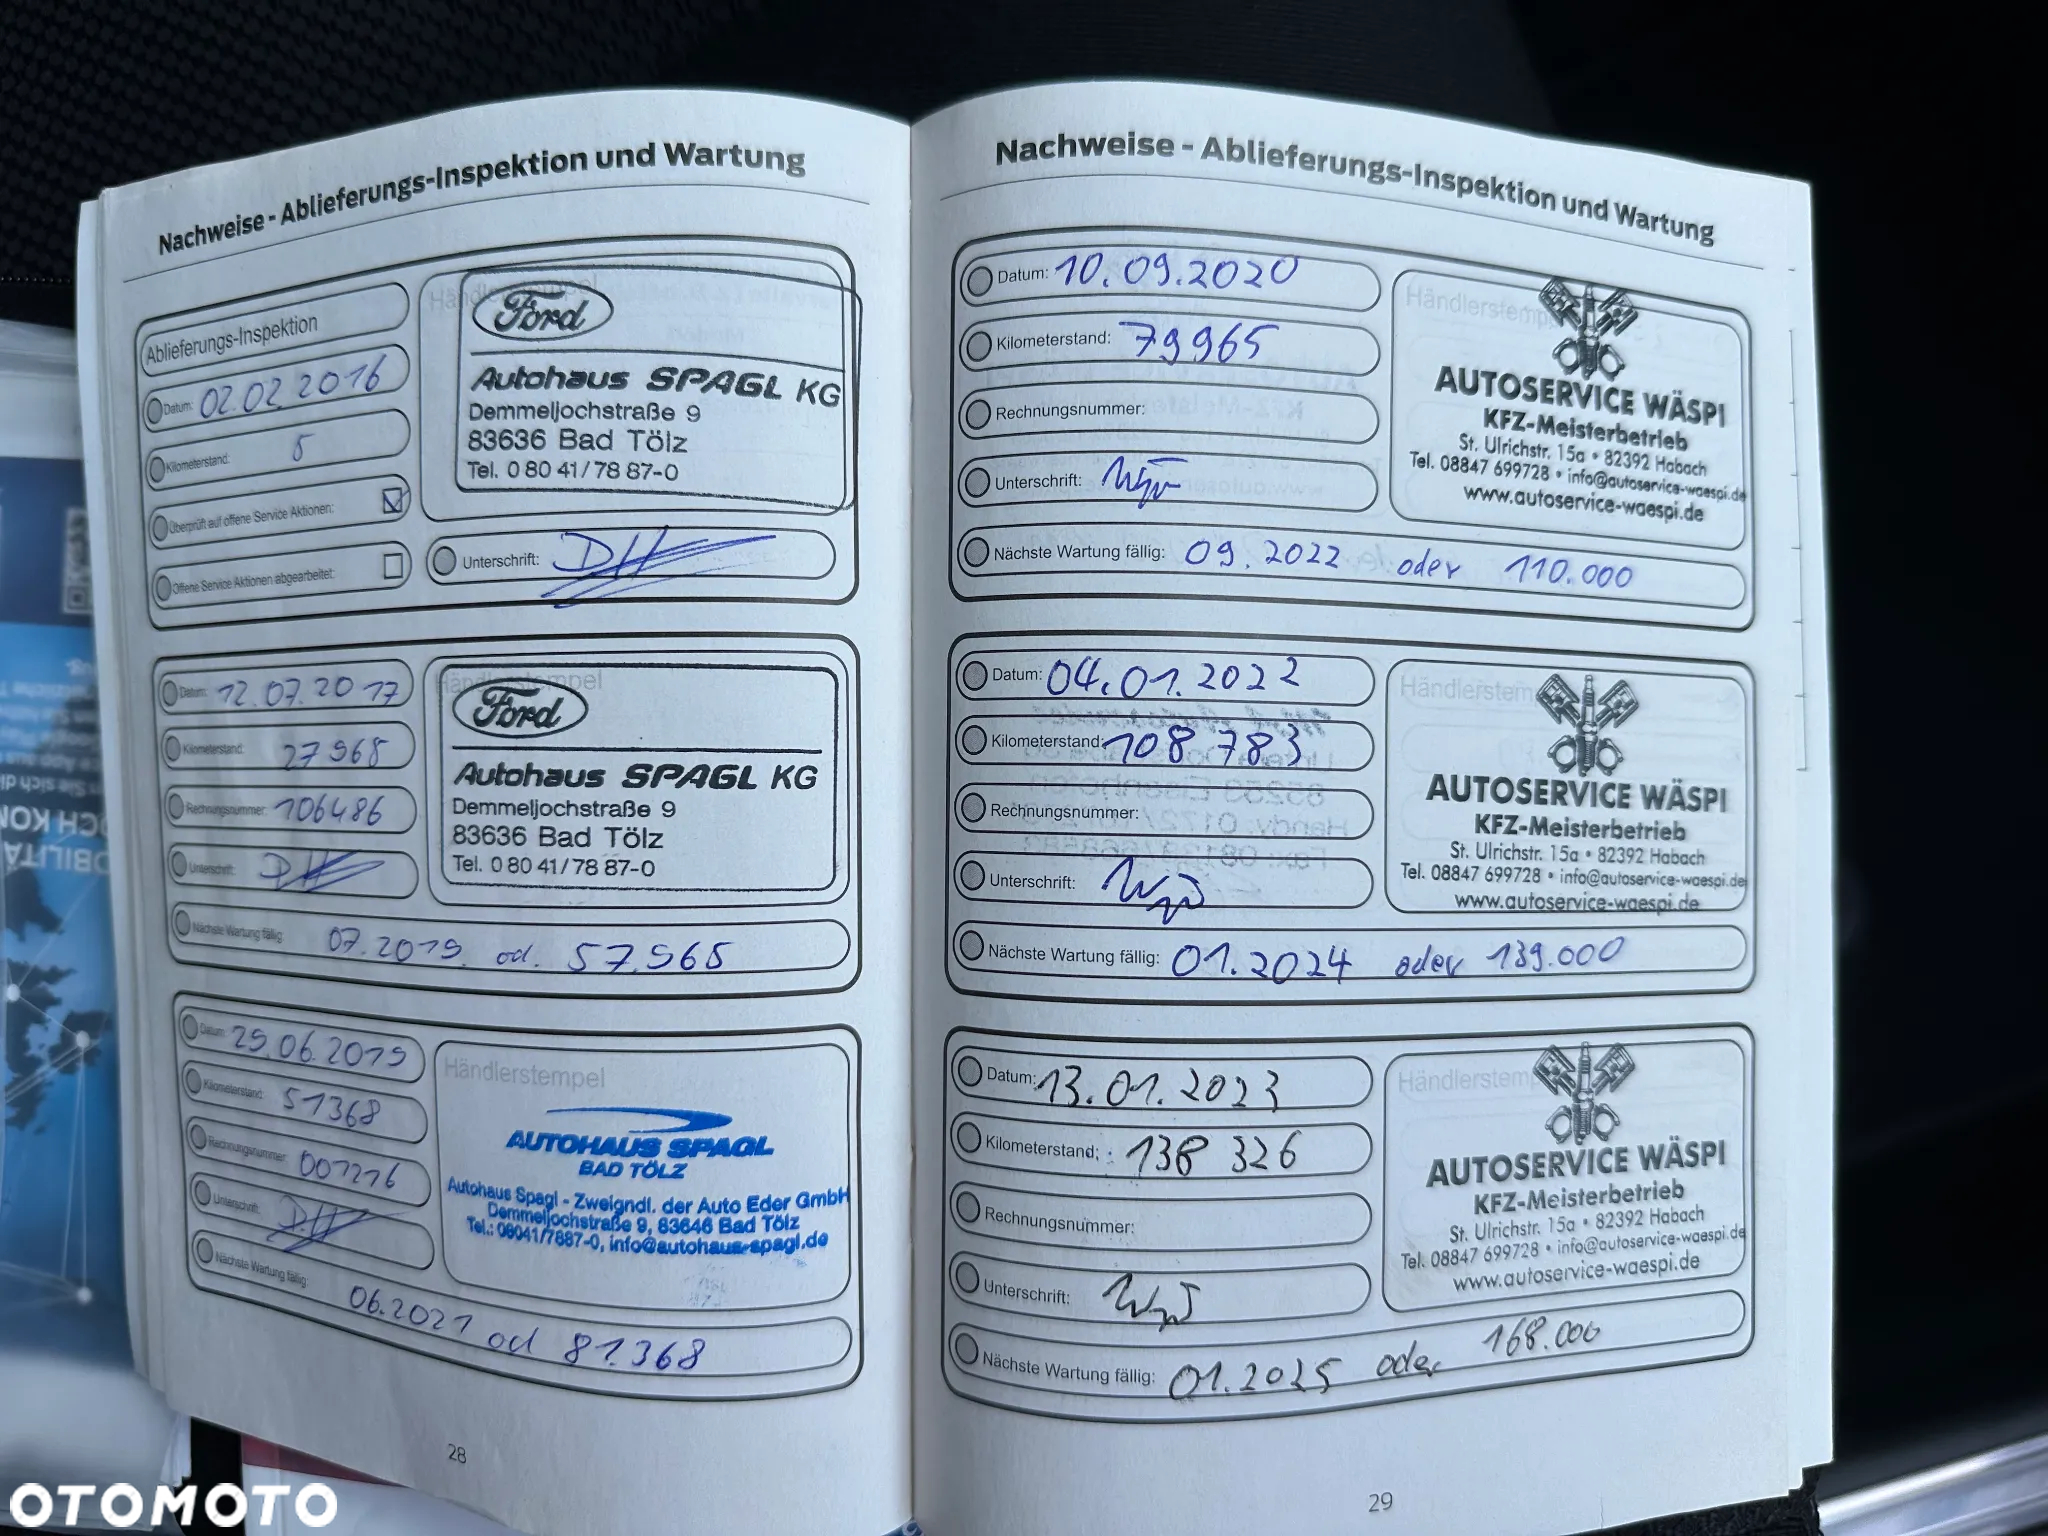 Nachweise - Ablieferungs-Inspektion und Wartung
Ablieferungs-Inspektion
Datum: 02.02.2016
Kilometerstand: 5
Überprüft auf offene Service Aktionen:
Offene Service Aktionen abgearbeitet:
Händlerstempel
Ford
Autohaus SPAGL KG
Demmeljochstraße 9
83636 Bad Tölz
Tel. 0 80 41/78 87-0
Unterschrift:
Datum: 12.07.2017
Kilometerstand: 27965
Rechnungsnummer: 106486
Unterschrift:
Händlerstempel
Ford
Autohaus SPAGL KG
Demmeljochstraße 9
83636 Bad Tölz
Tel. 0 80 41/78 87-0
Nächste Wartung fällig: 07.2019. od. 57.965
Datum: 25.06.2019
Kilometerstand: 51368
Rechnungsnummer: 001216
Unterschrift:
Händlerstempel
AUTOHAUS SPAGL
BAD TÖLZ
Autohaus Spagl - Zweigndl. der Auto Eder GmbH
Demmeljochstraße 9, 83646 Bad Tölz
Tel.: 08041/7887-0, info@autohaus-spagl.de
Nächste Wartung fällig: 06.2021 od 81.368
28
Nachweise - Ablieferungs-Inspektion und Wartung
Datum: 10.09.2020
Kilometerstand: 79965
Rechnungsnummer:
Unterschrift:
Händlerstempel
AUTOSERVICE WÄSPI
KFZ-Meisterbetrieb
St. Ulrichstr. 15a • 82392 Habach
Tel. 08847 699728 • info@autoservice-waespi.de
www.autoservice-waespi.de
Nächste Wartung fällig: 09.2022 oder 110.000
Datum: 04.01.2022
Kilometerstand: 108 783
Rechnungsnummer:
Unterschrift:
Händlerstem
AUTOSERVICE WÄSPI
KFZ-Meisterbetrieb
St. Ulrichstr. 15a • 82392 Habach
Tel. 08847 699728 • info@autoservice-waespi.de
www.autoservice-waespi.de
Nächste Wartung fällig: 01.2024 oder 139.000
Datum: 13.01.2023
Kilometerstand: 138 326
Rechnungsnummer:
Unterschrift:
Händlerstemp
AUTOSERVICE WÄSPI
KFZ-Meisterbetrieb
St. Ulrichstr. 15a • 82392 Habach
Tel. 08847 699728 • info@autoservice-waespi.de
www.autoservice-waespi.de
Nächste Wartung fällig: 01.2025 oder 168.000
29
OTOMOTO